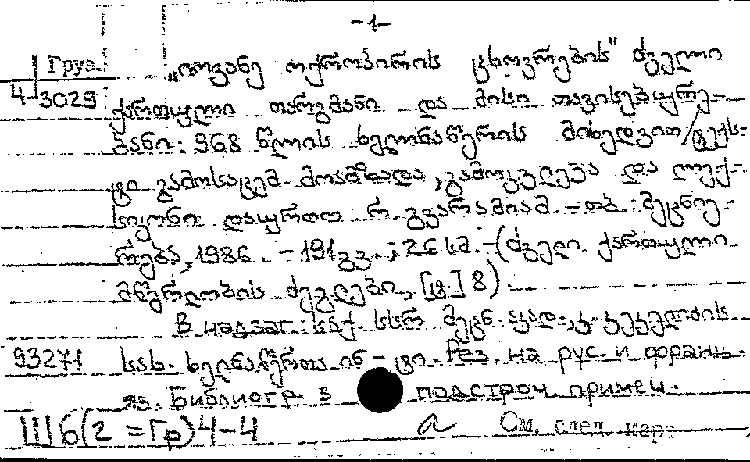 -1-
Груз. „იოვანე ოქროპირის ცხოვრების“ ძველი
4 3029 ქართული თარგმანი და მისი თავისებურე-
ბანი: 968 წლის ხელნაწერის მიხედვით / ტექს-
ტი გამოსაცემ. მოამზადა, გამოკვლევა და ლექ-
სიკონი დაურთო რ. გვარამიამ. - თბ.: მეცნიე-
რება, 1986. - 191 გვ.; 26 სმ. - (ძველი ქართული
მწერლობის ძეგლები, [ტ.] 8)
В надзаг.: საქ. სსრ მეცნ. აკად., კ. კეკელიძის
93271 სახ. ხელნაწერთა ინ-ტი. Рез. на рус. и франц.
яз. Библиогр. в подстроч. примеч.
III б(2=Гр)4-4 а См. след. кар.